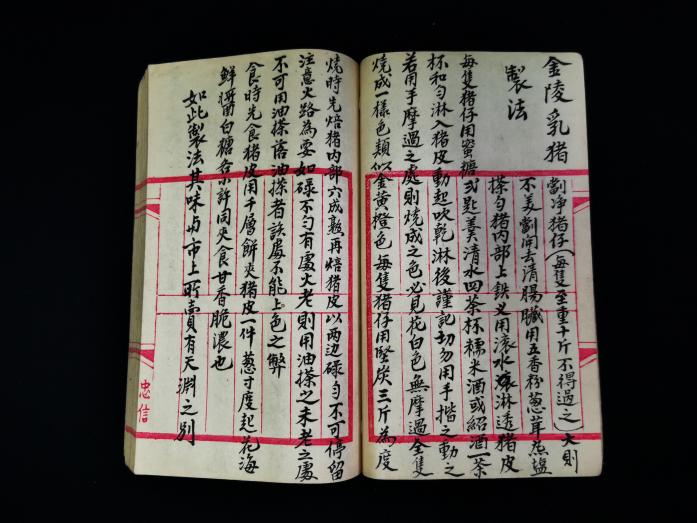 金陵乳猪
製法
劏净猪仔(每隻至重十斤不得過之)大則
不美劏開去清腸臟用五香粉葱茸鹽
搽勻猪内部上鉄叉用滚水淋透猪皮
每隻猪仔用蜜糖弍匙羹清水四茶杯糯米酒或紹酒一茶
杯和勻淋入猪皮動起吹乾淋後謹記切勿用手揩之動之
若用手摩過之處則燒成之色必見花白色無摩過全隻
燒成一樣色類似金黄橙色每隻猪仔用堅炭三斤為度
燒時先焙猪内部六成熟再焙猪皮以两边碌勻不可停留
注意火路為要如碌不勻有處火老則用油搽之未老之處
不可用油搽落油搽者該處不能上色之弊
食時先食猪皮用千層餅夾猪皮一件葱寸度起花海
鮮醬白糖各許同夾食甘香脆濃也
如此製法其味与市上所賣有天淵之别
忠信